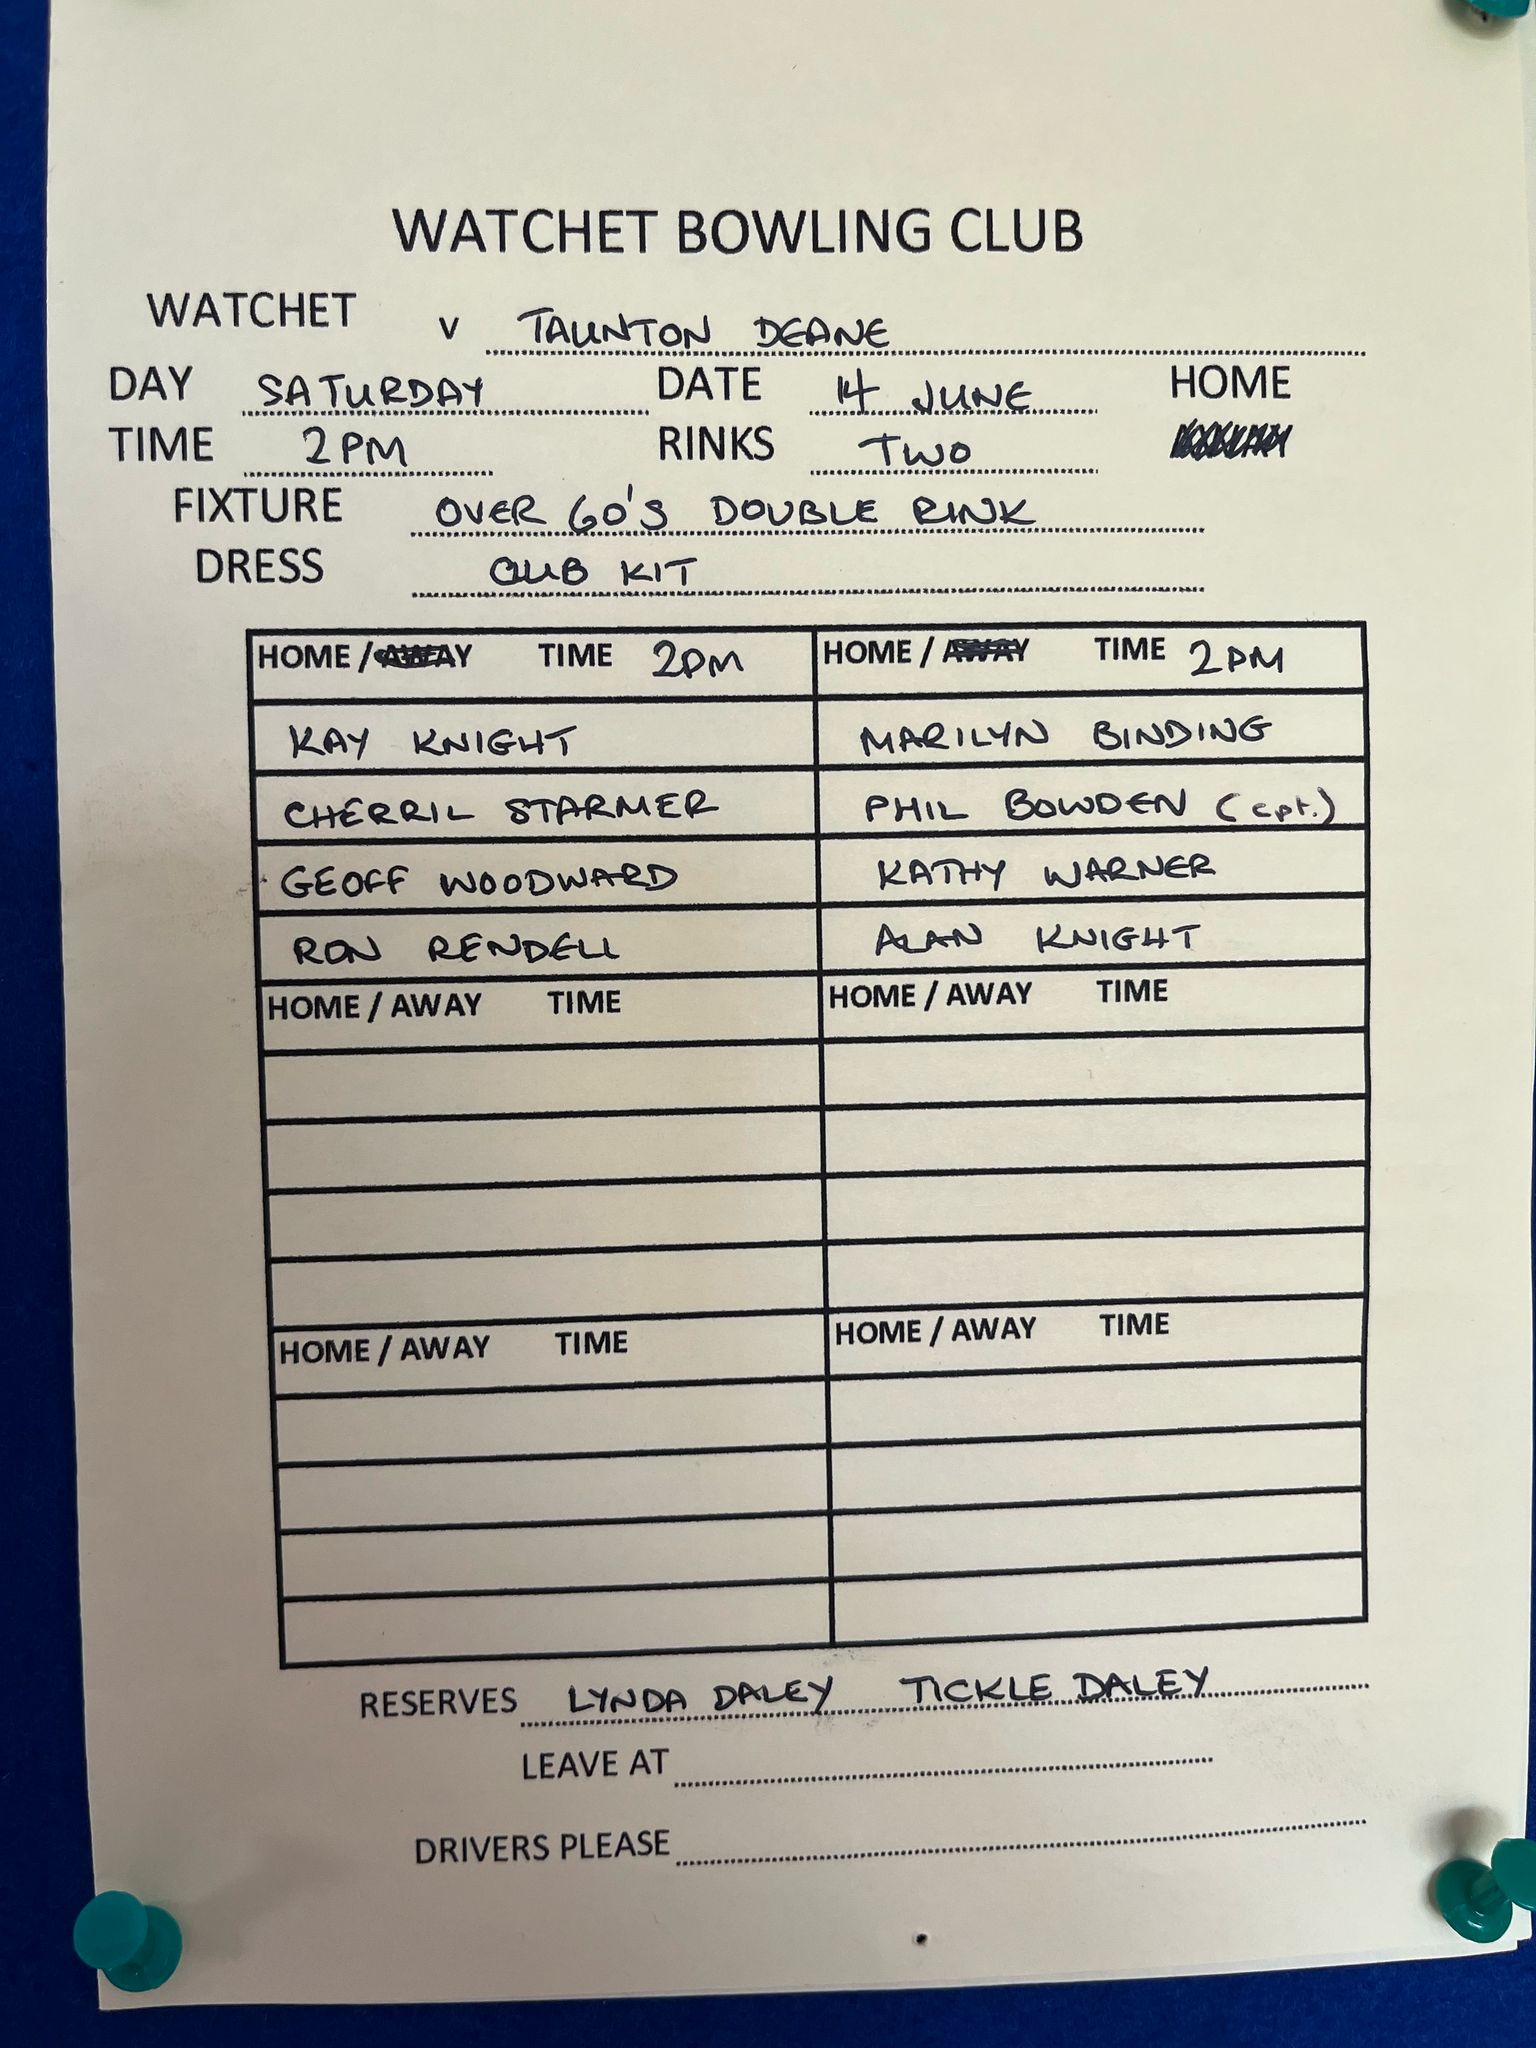 WATCHET BOWLING CLUB
WATCHET v TAUNTON DEANE
DAY SATURDAY DATE 14 JUNE HOME
TIME 2PM RINKS TWO
FIXTURE OVER 60'S DOUBLE RINK
DRESS CLUB KIT
HOME / AWAY TIME 2PM HOME / AWAY TIME 2PM
KAY KNIGHT MARILYN BINDING
CHERRIL STARMER PHIL BOWDEN (cpt.)
GEOFF WOODWARD KATHY WARNER
RON RENDELL ALAN KNIGHT
HOME / AWAY TIME HOME / AWAY TIME
HOME / AWAY TIME HOME / AWAY TIME
RESERVES LYNDA DALEY TICKLE DALEY
LEAVE AT
DRIVERS PLEASE